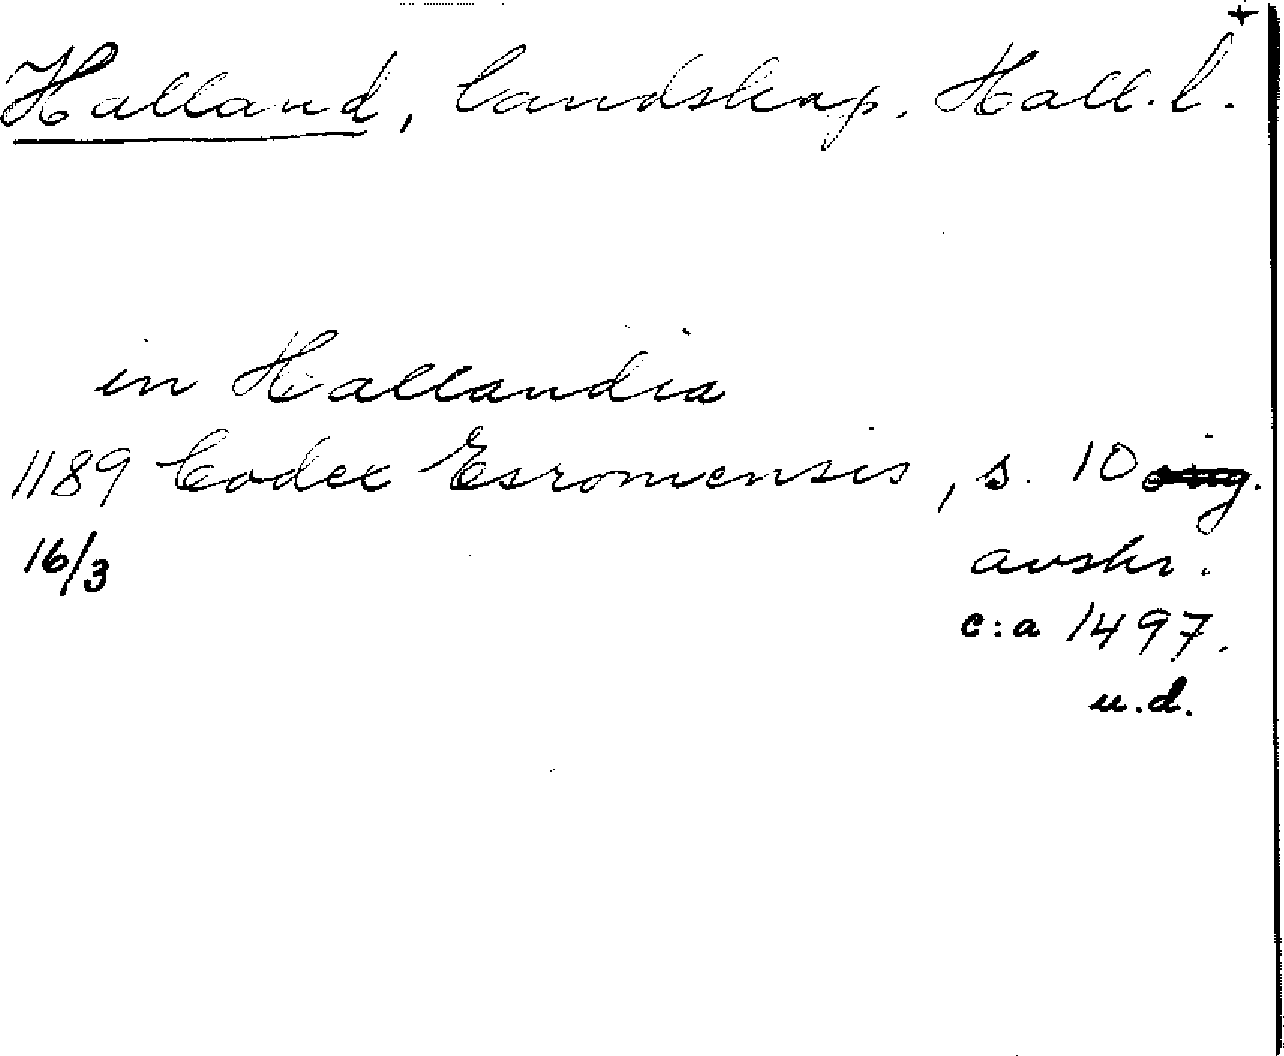 +
Halland, landskap. Hall. l.
in Hallandia
1189 Codex Esromensis, s. 10 orig.
16/3 avskr.
c:a 1497.
u.d.